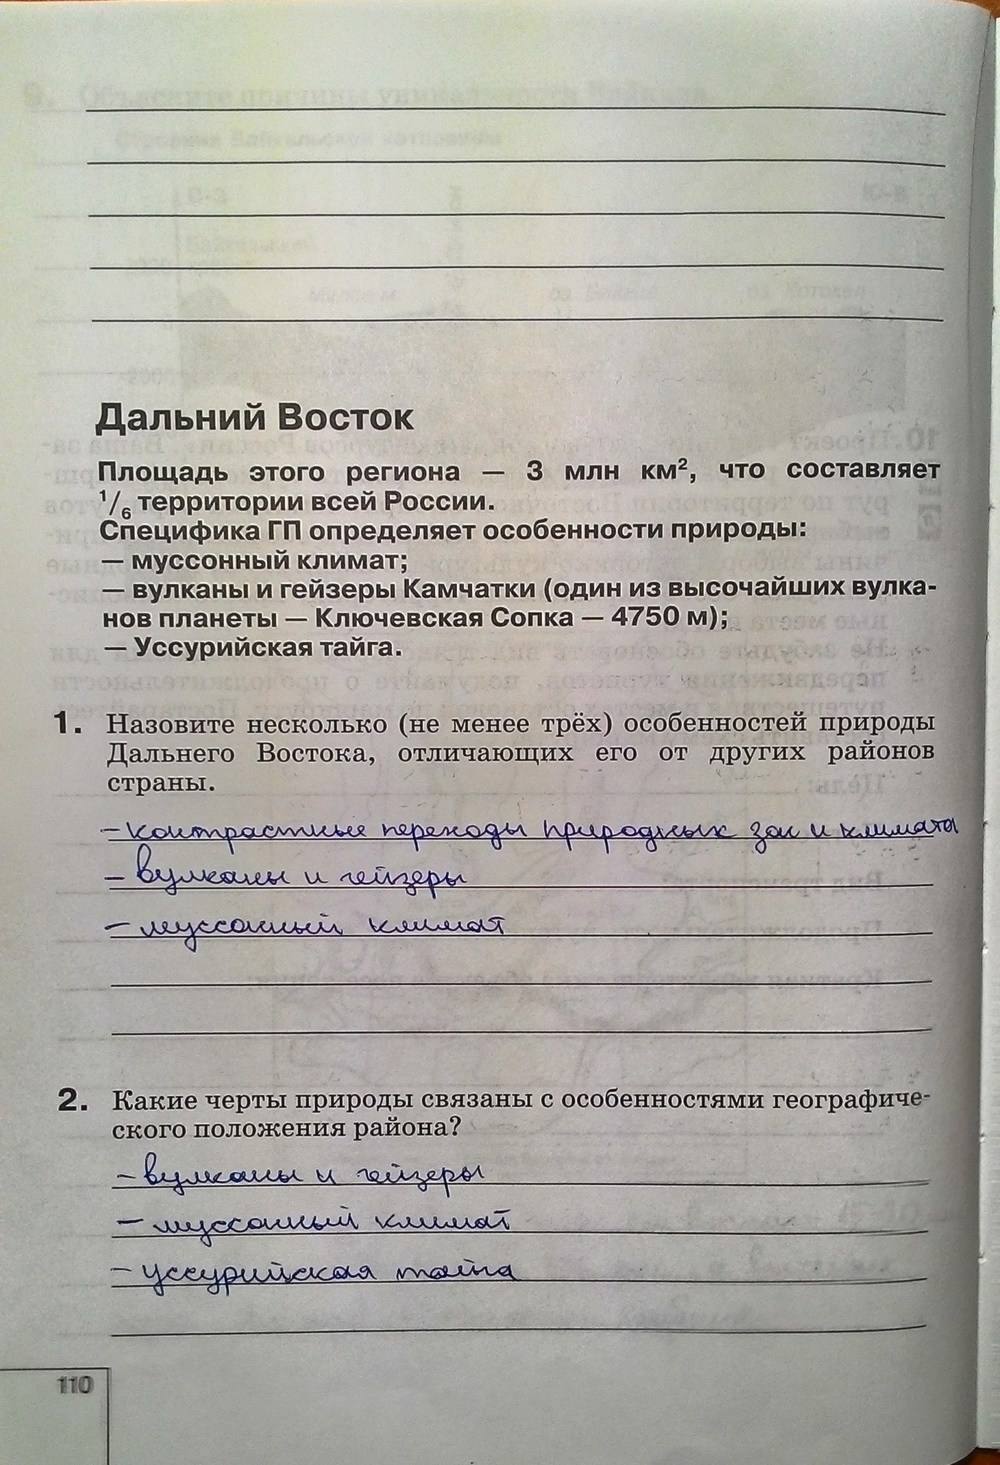 Дальний Восток
Площадь этого региона — 3 млн км², что составляет
¹/₆ территории всей России.
Специфика ГП определяет особенности природы:
— муссонный климат;
— вулканы и гейзеры Камчатки (один из высочайших вулка-
нов планеты — Ключевская Сопка — 4750 м);
— Уссурийская тайга.
1. Назовите несколько (не менее трёх) особенностей природы
Дальнего Востока, отличающих его от других районов
страны.
- контрастные переходы природных зон и климата
- вулканы и гейзеры
- муссонный климат
2. Какие черты природы связаны с особенностями географиче-
ского положения района?
- вулканы и гейзеры
- муссонный климат
- уссурийская тайга
110